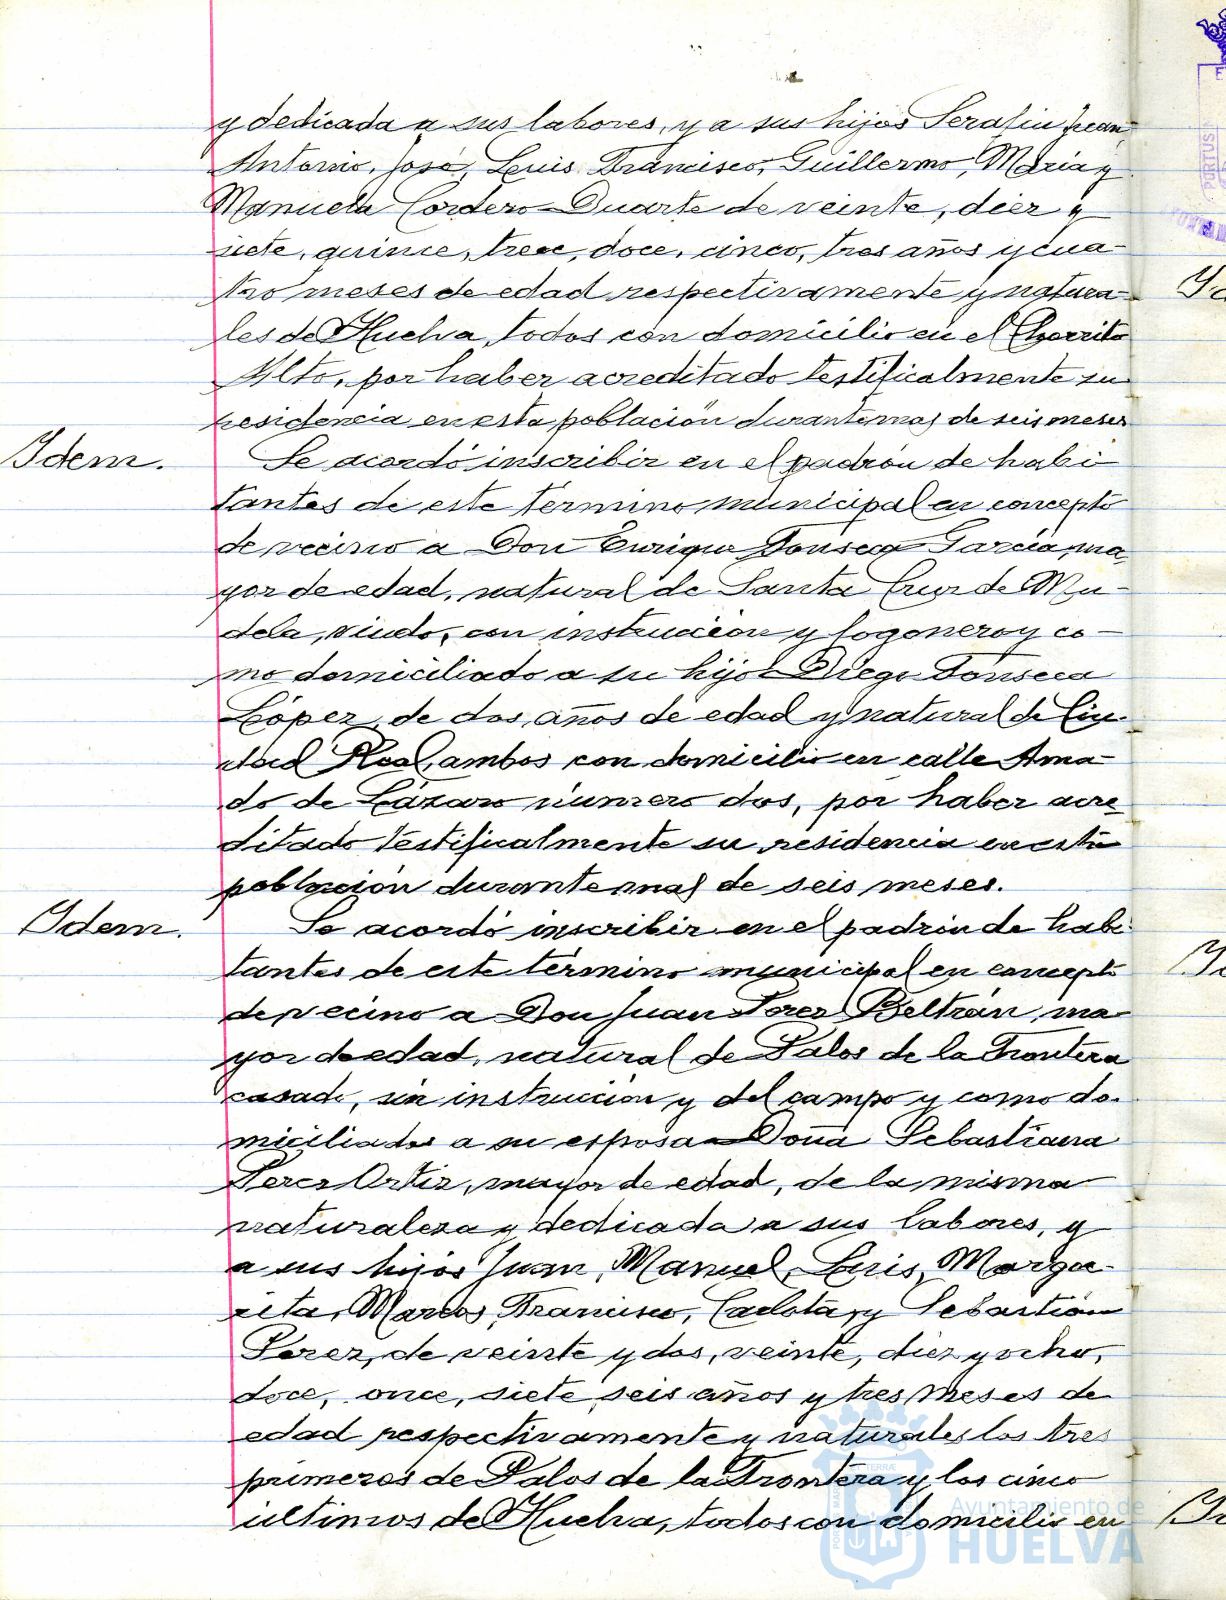 y dedicada a sus labores, y a sus hijos Serafin Juan
Antonio, José, Luis Francisco, Guillermo, Maria y
Manuela Cordero Duarte de veinte, diez y
siete, quince, trece, doce, cinco, tres años y cua-
tro meses de edad respectivamente y natura-
les de Huelva, todos con domicilio en el Chorrito
Alto, por haber acreditado testificalmente su
residencia en esta población durante mas de seis meses
Idem.
Se acordó inscribir en el padrón de habi-
tantes de este término municipal en concepto
de vecino a Don Enrique Fonseca Garcia, ma-
yor de edad, natural de Santa Cruz de Mu-
dela, viudo, con instrucción y fogonero y co-
mo domiciliado a su hijo Diego Fonseca
López, de dos años de edad y natural de Ciu-
dad Real, ambos con domicilio en calle Ama-
do de Lázaro número dos, por haber acre-
ditado testificalmente su residencia en esta
población durante mas de seis meses.
Idem.
Se acordó inscribir en el padrón de habi-
tantes de este término municipal en concepto
de vecino a Don Juan Perez Beltrán, ma-
yor de edad, natural de Palos de la Frontera
casado, sin instrucción y del campo y como do-
miciliados a su esposa Doña Sebastiana
Perez Ortiz, mayor de edad, de la misma
naturaleza y dedicada a sus labores, y
a sus hijos Juan, Manuel, Luis, Marga-
rita, Marcos, Francisco, Carlota, y Sebastian
Perez, de veinte y dos, veinte, diez y ocho,
doce, once, siete, seis años y tres meses de
edad respectivamente y naturales los tres
primeros de Palos de la Frontera y los cinco
últimos de Huelva, todos con domicilio en
Ayuntamiento de
HUELVA